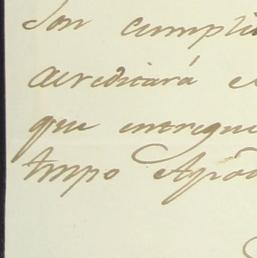 Son cumpli
acreditará e
que entregue
tmpo Apõ